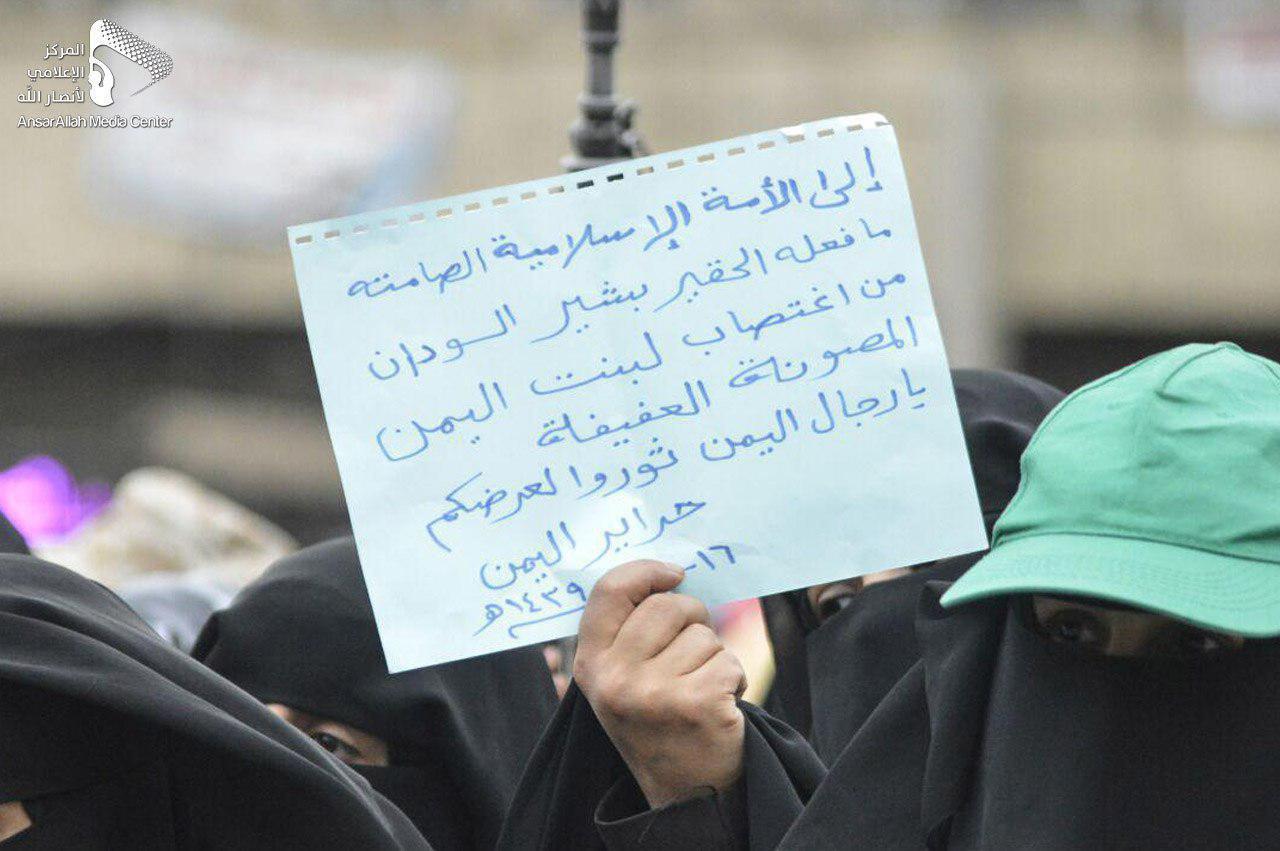 المركز
الإعلامي
لأنصار الله
AnsarAllah Media Center
إلى الأمة الإسلامية الصامته
ما فعله الحقير بشير السودان
من اغتصاب لبنت اليمن
المصونة العفيفة
يا رجال اليمن ثوروا لعرضكم
حراير اليمن
١٦-
١٤٣٩هـ